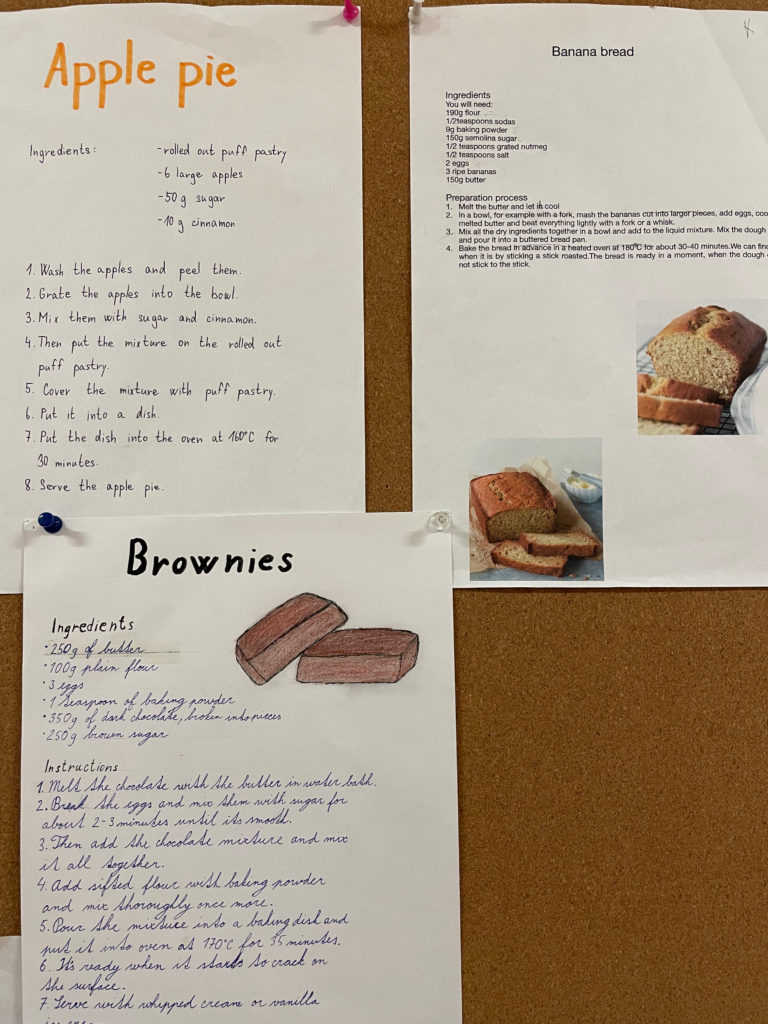 Apple pie
Ingredients:
-rolled out puff pastry
-6 large apples
-50 g sugar
-10 g cinnamon
1. Wash the apples and peel them.
2. Grate the apples into the bowl.
3. Mix them with sugar and cinnamon.
4. Then put the mixture on the rolled out
puff pastry.
5. Cover the mixture with puff pastry.
6. Put it into a dish.
7. Put the dish into the oven at 160°C for
30 minutes.
8. Serve the apple pie.
Banana bread
Ingredients
You will need:
190g flour
1/2teaspoons sodas
9g baking powder
150g semolina sugar
1/2 teaspoons grated nutmeg
1/2 teaspoons salt
2 eggs
3 ripe bananas
150g butter
Preparation process
1. Melt the butter and let it cool
2. In a bowl, for example with a fork, mash the bananas cut into larger pieces, add eggs,
melted butter and beat everything lightly with a fork or a whisk.
3. Mix all the dry ingredients together in a bowl and add to the liquid mixture. Mix the dough
and pour it into a buttered bread pan.
4. Bake the bread in advance in a heated oven at 180°C for about 30-40 minutes.We can
when it is by sticking a stick roasted.The bread is ready in a moment, when the dough
not stick to the stick.
Brownies
Ingredients
• 250g of butter
• 100g plain flour
• 3 eggs
• 1 teaspoon of baking powder
• 350g of dark chocolate, broken into pieces
• 250g brown sugar
Instructions
1. Melt the chocolate with the butter in water bath.
2. Break the eggs and mix them with sugar for
about 2-3 minutes until its smooth.
3. Then add the chocolate mixture and mix
it all together.
4. Add sifted flour with baking powder
and mix thoroughly once more.
5. Pour the mixture into a baking dish and
put it into oven at 170°C for 35 minutes.
6. It's ready when it starts to crack on
the surface.
7. Serve with whipped cream or vanilla